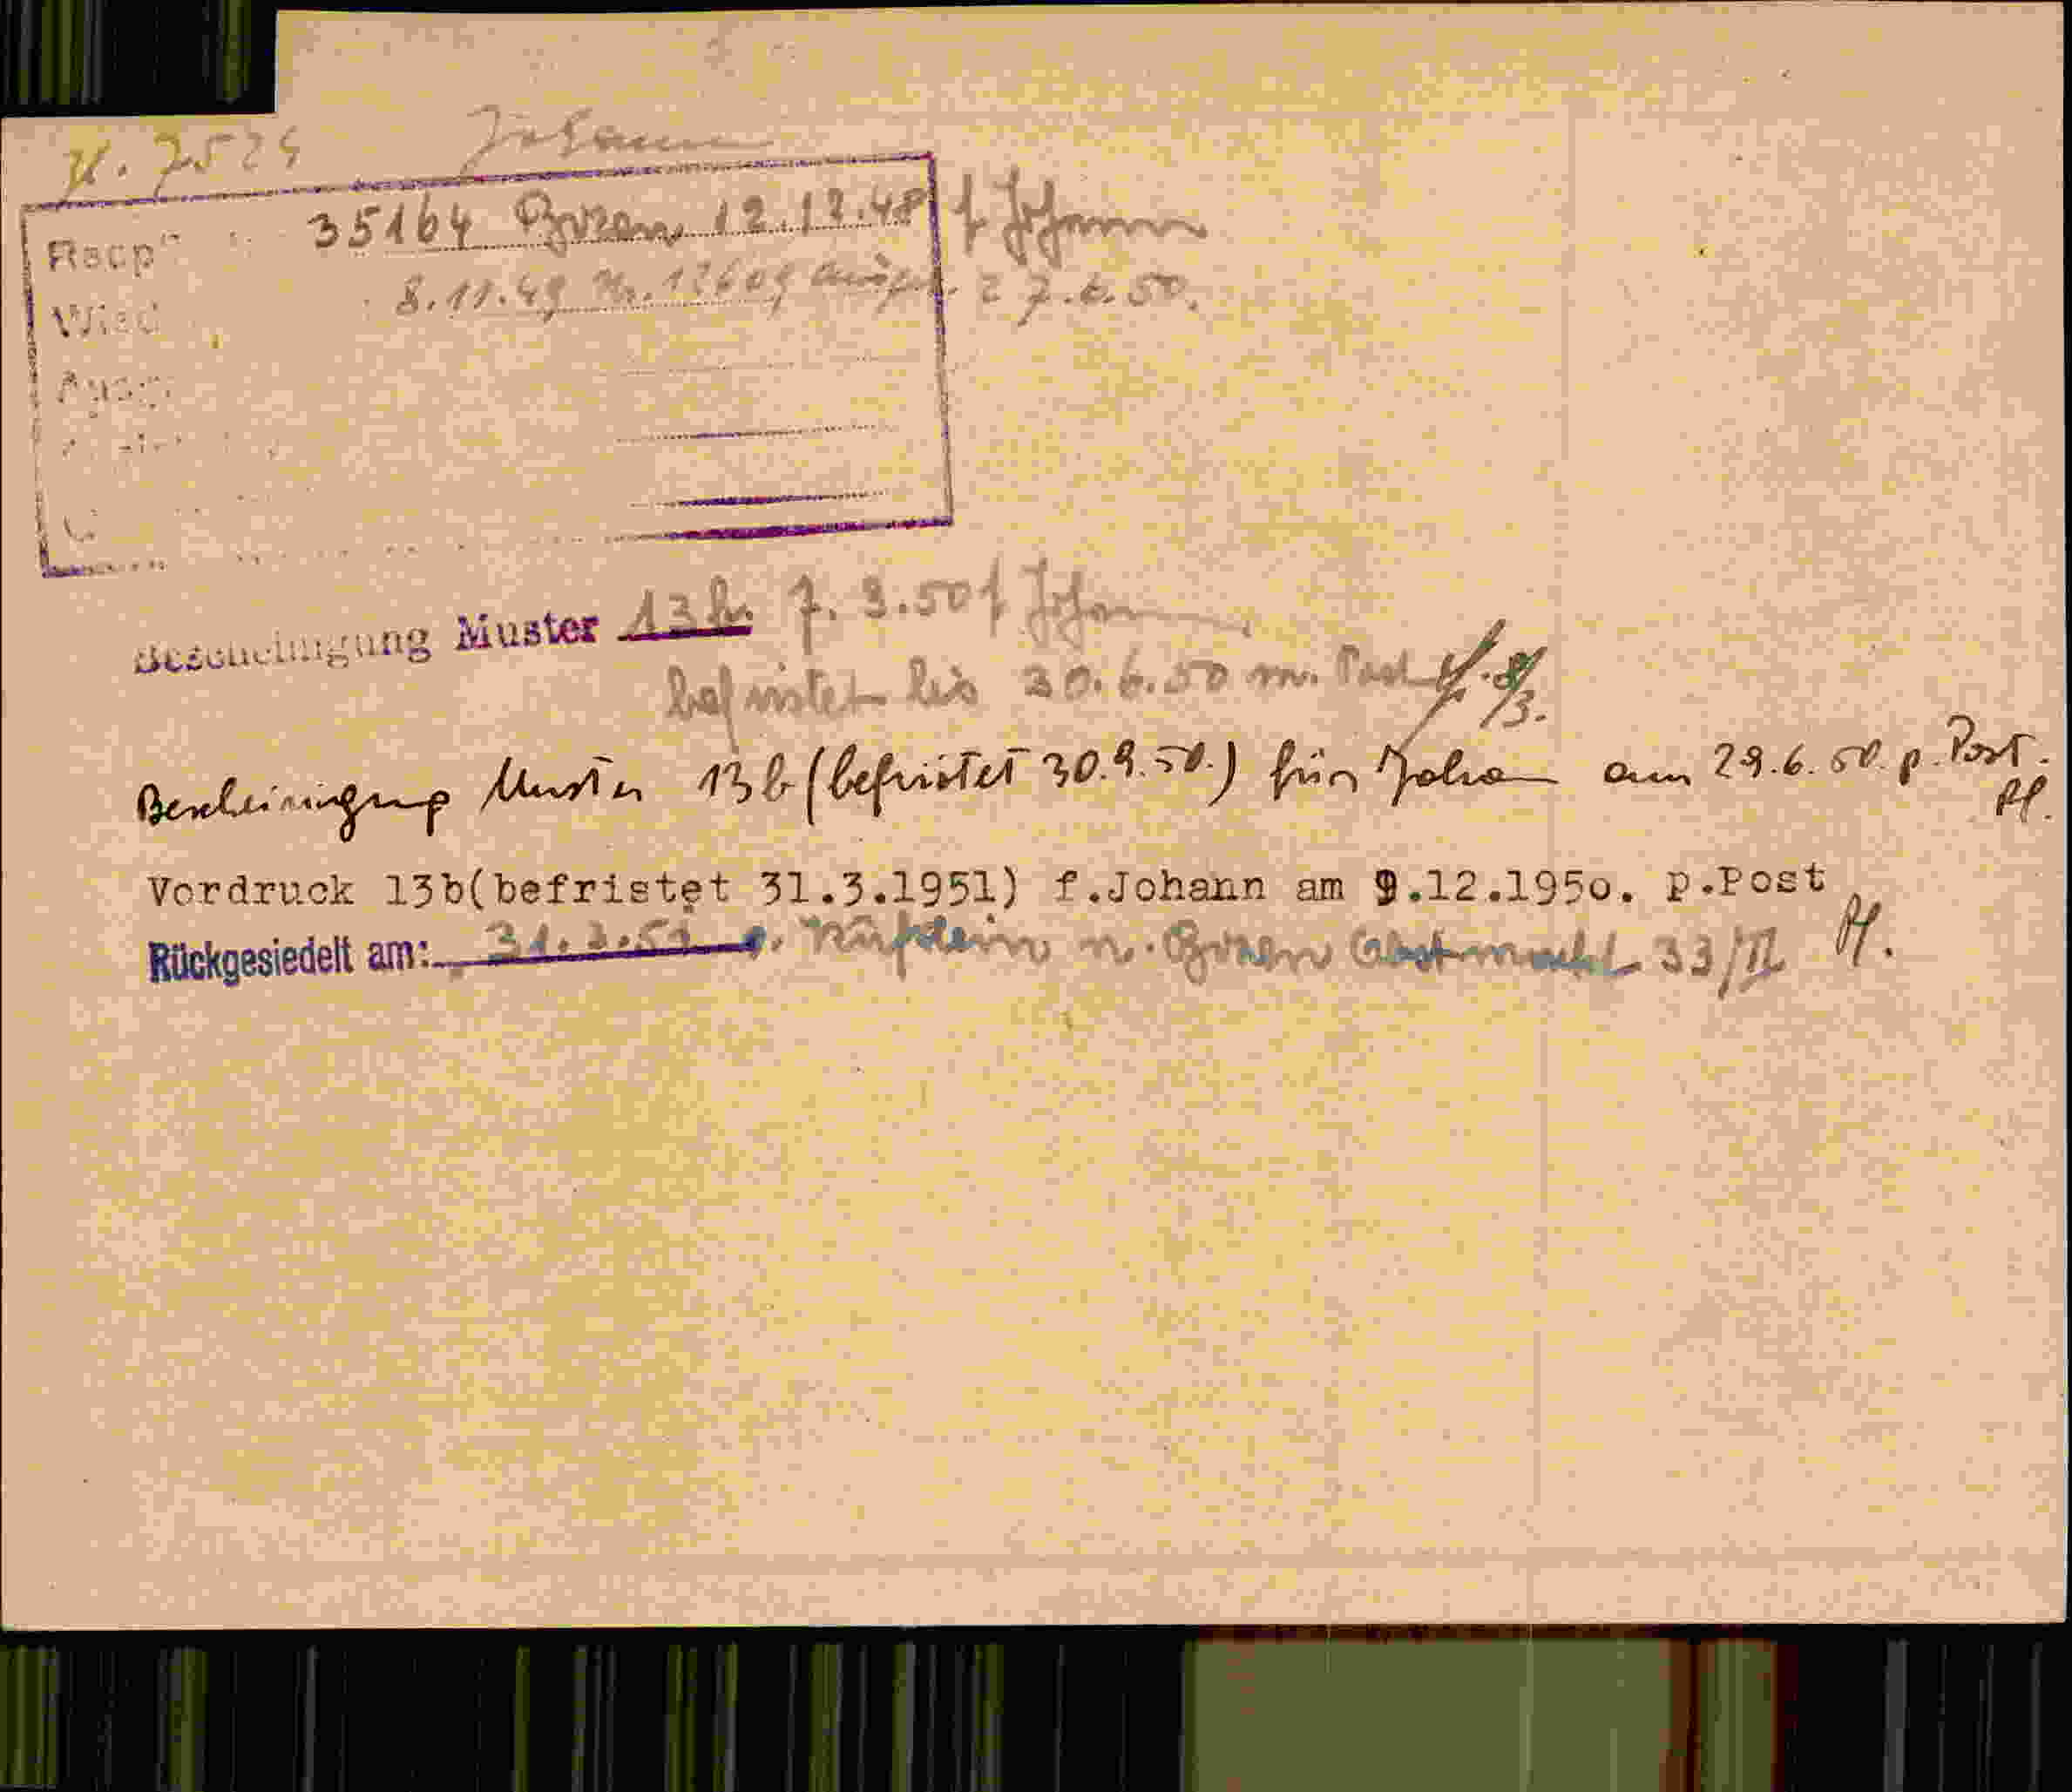 Johann
35164 Bozen 12.12.48 f Johann
8.11.49 Nr. 27.6.50.
Bescheinigung Muster 13 b. 7.3.50 f Johann
befristet bis 30.6.50 m. Post
Bescheinigung Muster 13b (befristet 30.9.50.) für Johann am 29.6.50. p. Post.
Pf.
Vordruck 13b(befristet 31.3.1951) f.Johann am 9.12.195o. p.Post
Pf.
Rückgesiedelt am: 31.3.51 v. Kufstein n. Bozen 33/II